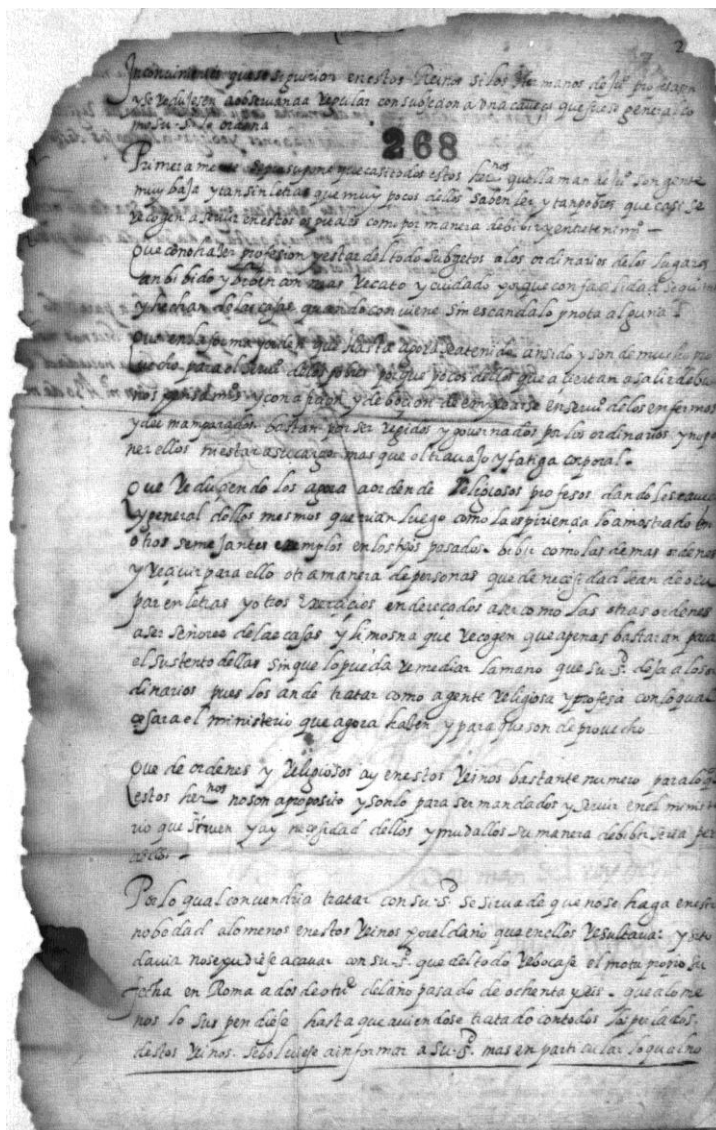 2
Inconvinientes que se siguirian en estos Reinos si los Hermanos de Ju.º profesasen
y se redujesen a observancia regular con subjecion a una caveça que fuese general co
mo su s.d lo ordena
268
Primeramente se presupone que casi todos estos her.nos que llaman de Ju.º son gente
muy baja y tan sin letras que muy pocos dellos saben leer y tan pobres que casi se
recogen a servir en estos ospitales como por manera de bibir y entretenim.º –
Que con no haser profesion y estar del todo subjetos a los ordinarios de los lugares
an bibido y biben con mas recato y cuidado porque con facilidad se quitan
y hechan de las casas quando conviene sin escandalo ni nota alguna
Que en la forma y orden que hasta agora an tenido an sido y son de mucho pro
vecho para el serv.º de los pobres porque pocos que aciertan a salir de bue
nos y con aficion y debocion de emplearse en serv.º de los enfermos
y desmamparados bastan por ser regidos y governados por los ordinarios y no po
ner ellos ni estar a su cargo mas que el travajo y fatiga corporal.
Que reduciendo los agora a orden de Religiosos profesos dandoles caveça
y general dellos mesmos querrian luego como la espiriencia lo a mostrado en
otros semejantes exemplos en los años pasados. bibir como las demas ordenes
y recivir para ello otra manera de personas que de necesidad se an de ocu
par en letras y otros exercicios endereçados a ser como las otras ordenes
a ser señores de las casas y limosna que recogen que apenas bastaran para
el sustento dellas sin que lo pueda remediar la mano que su s.d deja a los or
dinarios pues los an de tratar como a gente religiosa y profesa con lo qual
cesara el ministerio que agora hazen y para que son de provecho
Que de ordenes y religiosos ay en estos reinos bastante numero para lo q.
estos her.nos no son a proposito y sonlo para ser mandados y servir en el ministe
rio que sirven y ay necesidad dellos y mudallos su manera de bibir seria per
Por lo qual convendria tratar con su s.d se sirva de que no se haga en esto
nobedad a lo menos en estos reinos por el daño que en ellos resultaria y si to
davia no se pudiese acavar con su s.d que del todo rebocase el motu proprio su
fecha en Roma a dos de otu.e del año pasado de ochenta y seis. que a lo me
nos lo suspendiese hasta que aviendose tratado con todos los perlados.
destos reinos. se bolviese a informar a su s.d mas en particular lo qual no